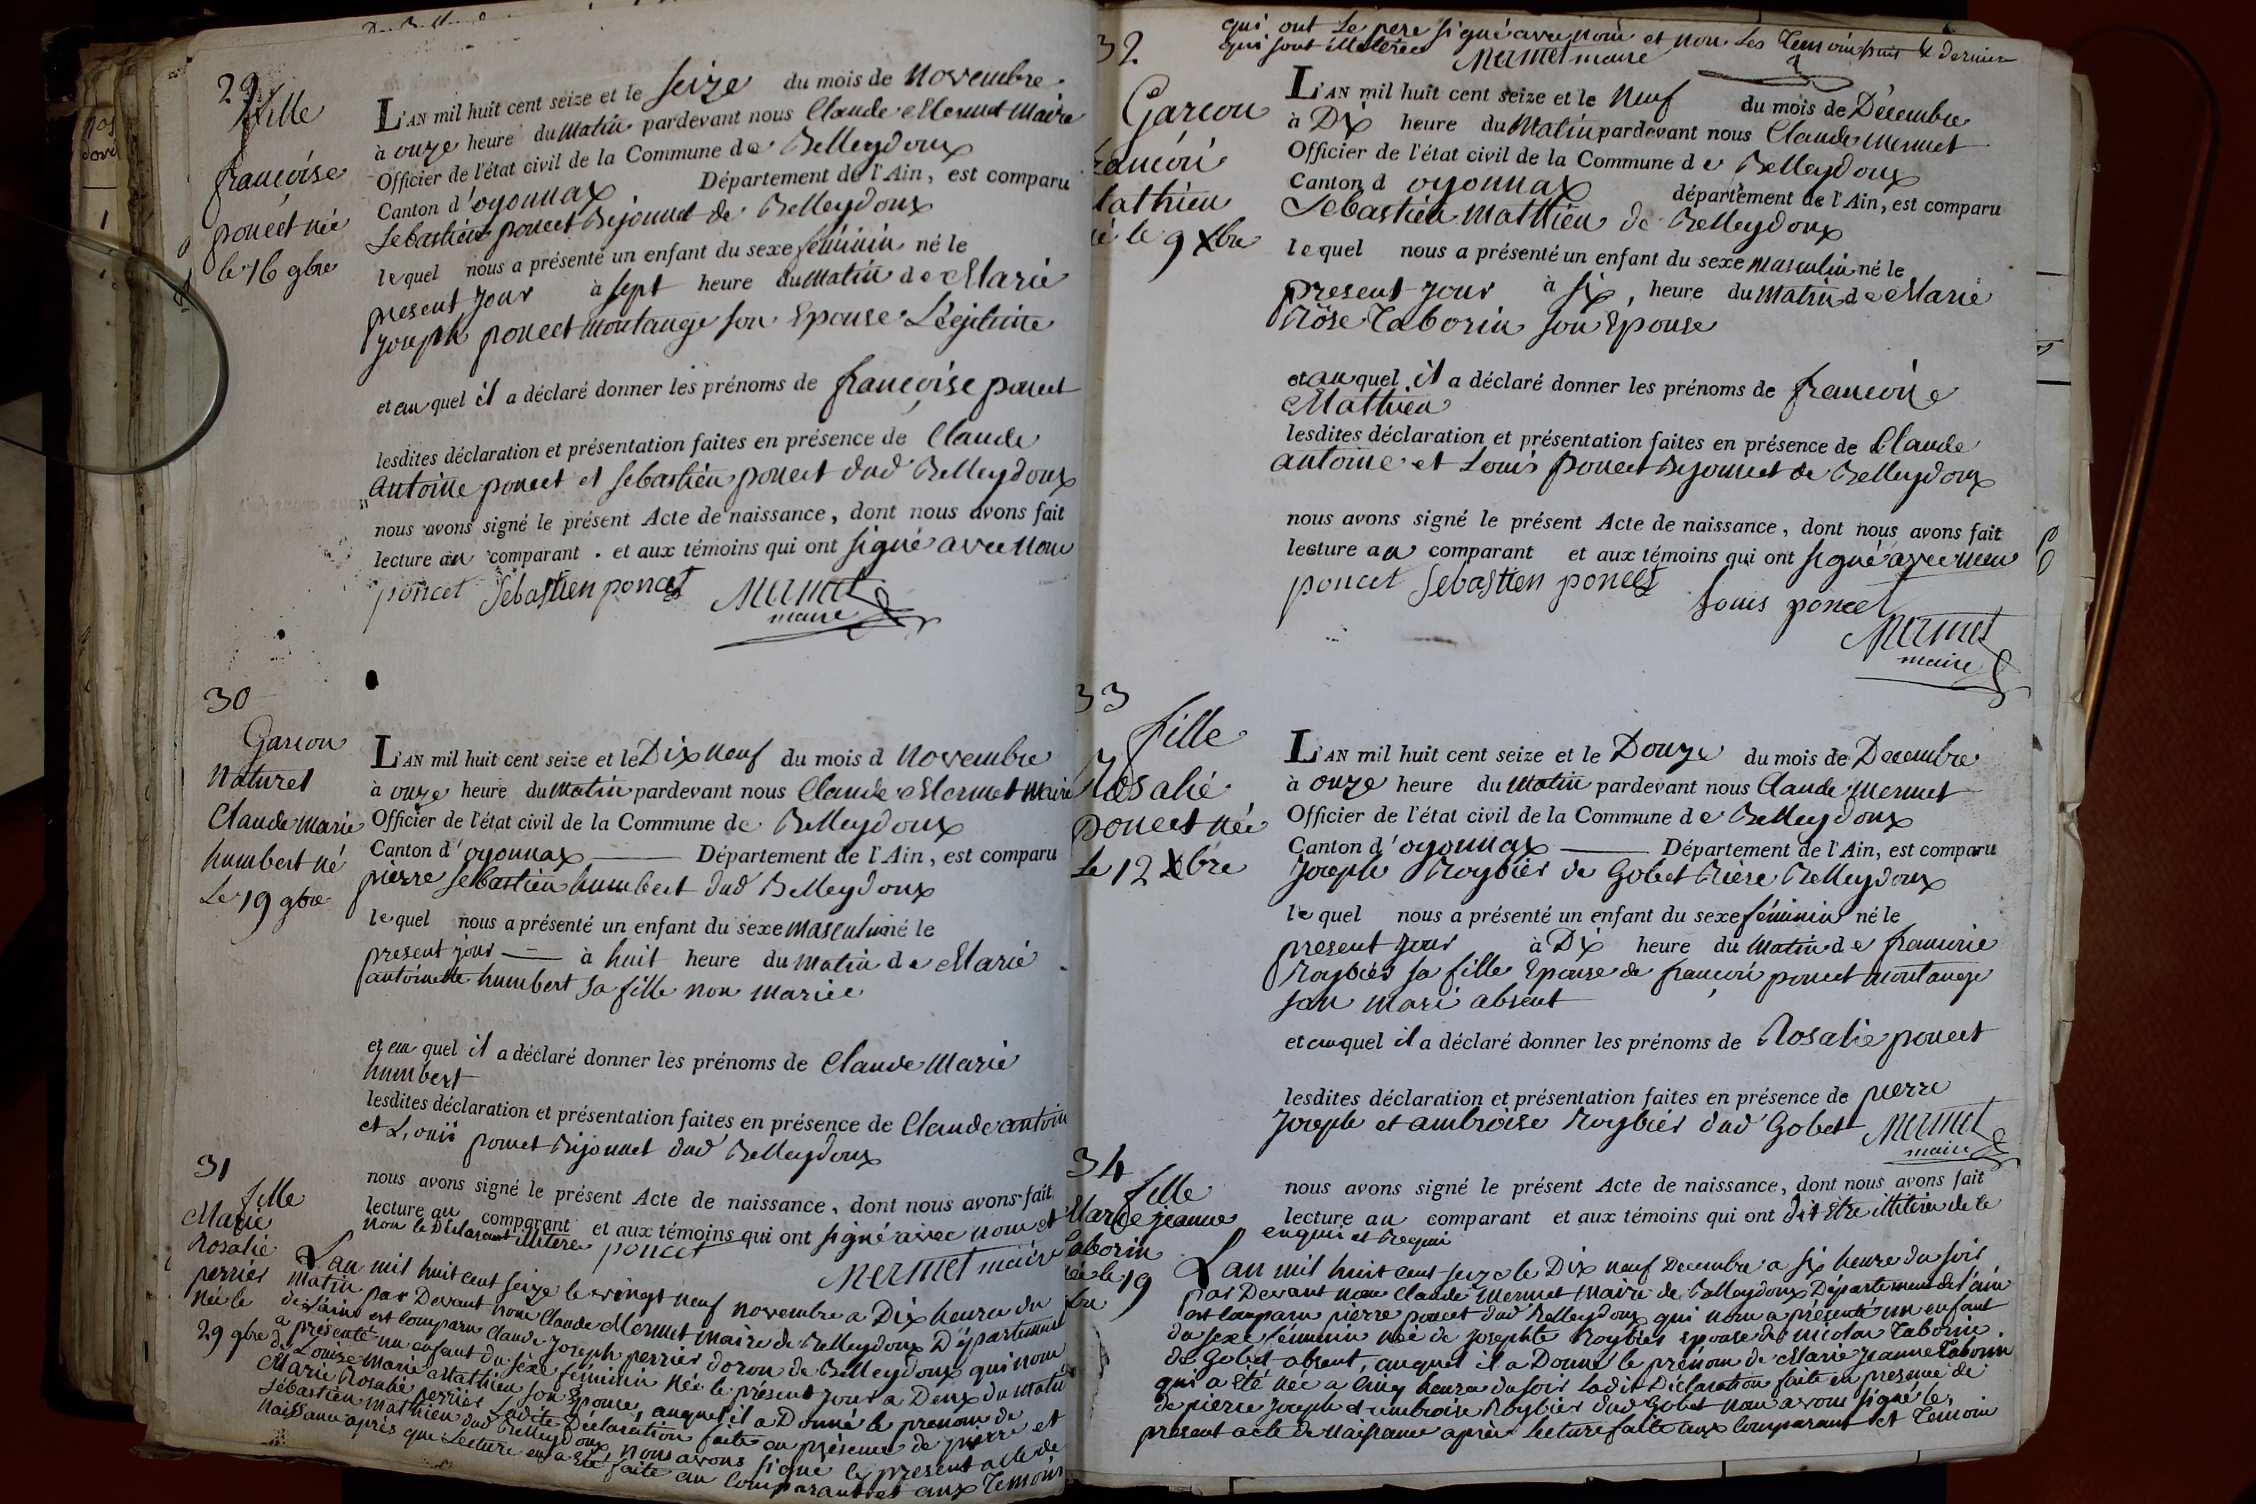 29
fille
françoise
poncet née
le 16 9bre
L'AN mil huit cent seize et le seize du mois de Novembre
à onze heure du Matin pardevant nous Claude Mermet Maire
Officier de l'état civil de la Commune de Belleydoux
Canton d'oyonnax Département de l'Ain, est comparu
Sebastien poncet Bijonnet de Belleydoux
lequel nous a présenté un enfant du sexe féminin né le
present jour à sept heure du Matin de Marie
joseph poncet montange son Epouse Légitime
et au quel il a déclaré donner les prénoms de françoise poncet
lesdites déclaration et présentation faites en présence de Claude
antoine poncet et sebastien poncet dud Belleydoux
nous avons signé le présent Acte de naissance, dont nous avons fait
lecture au comparant et aux témoins qui ont signé avec nous
poncet Sebastien poncet Mermet
maire
30
Garcon
naturel
Claude marie
humbert né
Le 19 9bre
L'AN mil huit cent seize et le Dix neuf du mois d Novembre
à onze heure du Matin pardevant nous Claude Mermet Maire
Officier de l'état civil de la Commune de Belleydoux
Canton d'oyonnax Département de l'Ain, est comparu
pierre sebastien humbert dud Belleydoux
lequel nous a présenté un enfant du sexe masculin né le
present jour à huit heure du matin de Marie
antoinette humbert sa fille non mariée
et au quel il a déclaré donner les prénoms de Claude Marie
humbert
lesdites déclaration et présentation faites en présence de Claude antoine
et Louis poncet Bijonnet dud Belleydoux
nous avons signé le présent Acte de naissance, dont nous avons fait
lecture au comparant et aux témoins qui ont signé avec nous et
non le Déclarant illitéré poncet Mermet maire
31
fille
Marie
Rosalie
perrier
Née le
29 9bre
L'an mil huit cent seize le vingt neuf novembre a Dix heures du
Matin par Devant nous Claude Mermet maire de Belleydoux Département
de l'ain est comparu Claude joseph perrier doron de Belleydoux qui nous
a présenté un enfant du sexe féminin née le present jour a Deux du matin
de Louise marie Mathieu son Epouse, auquel il a Donné le prenom de
Marie Rosalie perrier Ladite Déclaration faite en présence de pierre et
Sébastien Mathieu dud Belleydoux, nous avons signé le present acte de
naissance après que Lecture en a Eté faite au Comparant et aux Temoins
qui ont Le pere signé avec nous et non Les Temoins
qui sont illitérés Mermet maire
32
Garcon
françois
Mathieu
né le 9 Xbre
L'AN mil huit cent seize et le Neuf du mois de Décembre
à Dix heure du Matin pardevant nous Claude Mermet
Officier de l'état civil de la Commune de Belleydoux
Canton d oyonnax département de l'Ain, est comparu
Sebastien Mathieu de Belleydoux
lequel nous a présenté un enfant du sexe masculin né le
present jour à six, heure du Matin de Marie
Rose Taborin son Epouse
et au quel il a déclaré donner les prénoms de françois
Mathieu
lesdites déclaration et présentation faites en présence de Claude
antoine et Louis poncet Bijonnet de Belleydoux
nous avons signé le présent Acte de naissance, dont nous avons fait
lecture au comparant et aux témoins qui ont signé avec nous
poncet Sebastien poncet
Louis poncet
Mermet
maire
33
fille
Rosalie
poncet née
Le 12 Xbre
L'AN mil huit cent seize et le Douze du mois de Decembre
à onze heure du Matin pardevant nous Claude Mermet
Officier de l'état civil de la Commune de Belleydoux
Canton d'oyonnax Département de l'Ain, est comparu
Joseph Roybier de Gobet Rière Belleydoux
lequel nous a présenté un enfant du sexe féminin né le
present jour à Dix heure du Matin de francoise
Roybier sa fille Epouse de françois poncet montange
son mari absent
et au quel il a déclaré donner les prénoms de Rosalie poncet
lesdites déclaration et présentation faites en présence de pierre
Joseph et ambroise Roybier dud Gobet Mermet
maire
nous avons signé le présent Acte de naissance, dont nous avons fait
lecture au comparant et aux témoins qui ont dit Etre illitéré de ce
enquis et Requis
34
fille
Marie jeanne
Taborin
née le 19
Xbre
L'an mil huit cent seize le Dix neuf Decembre a six heure du soir
par Devant nous Claude Mermet Maire de Belleydoux Département de l'ain
est Comparu pierre poncet dud Belleydoux qui nous a présenté un enfant
du sexe féminin née de Josephte Roybier epouse de nicolas Taborin
de Gobet absent, auquel il a Donné le prénom de Marie Jeanne Taborin
qui a Eté née a Cinq heures du soir Ladit Déclaration faite en presence de
de pierre Joseph et ambroise Roybier dud Gobet nous avons signé le
present acte de Naissance après Lecture faite aux Comparant et Temoin